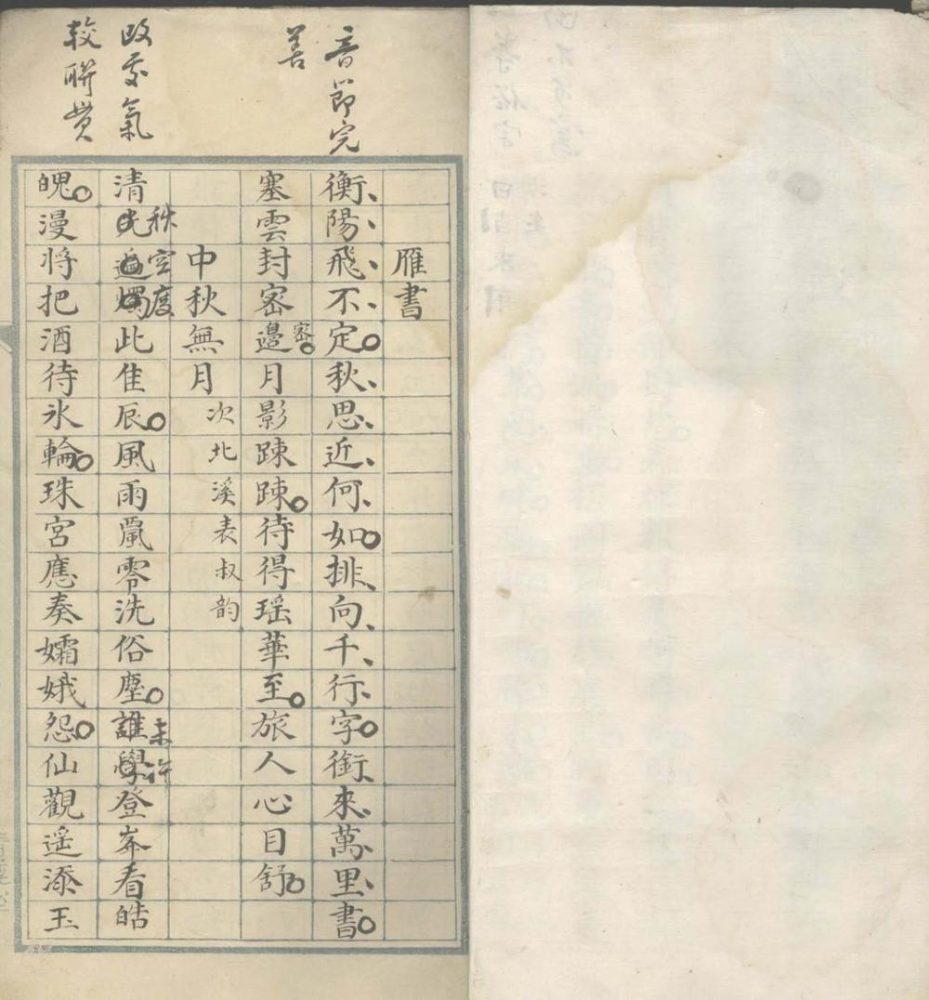 音節完
善
雁書
衡陽飛不定秋思近何如排向千行字銜來萬里書
塞雲封密邊月影踈踈待得瑶華至旅人心目舒
密
中秋無月 次北溪表叔韵
改處氣
較聯貫
清光遍燭此佳辰風雨飄零洗俗塵誰學登峯看皓
秋空度
未許
魄漫將把酒待氷輪珠宮應奏孀娥怨仙觀遥添玉